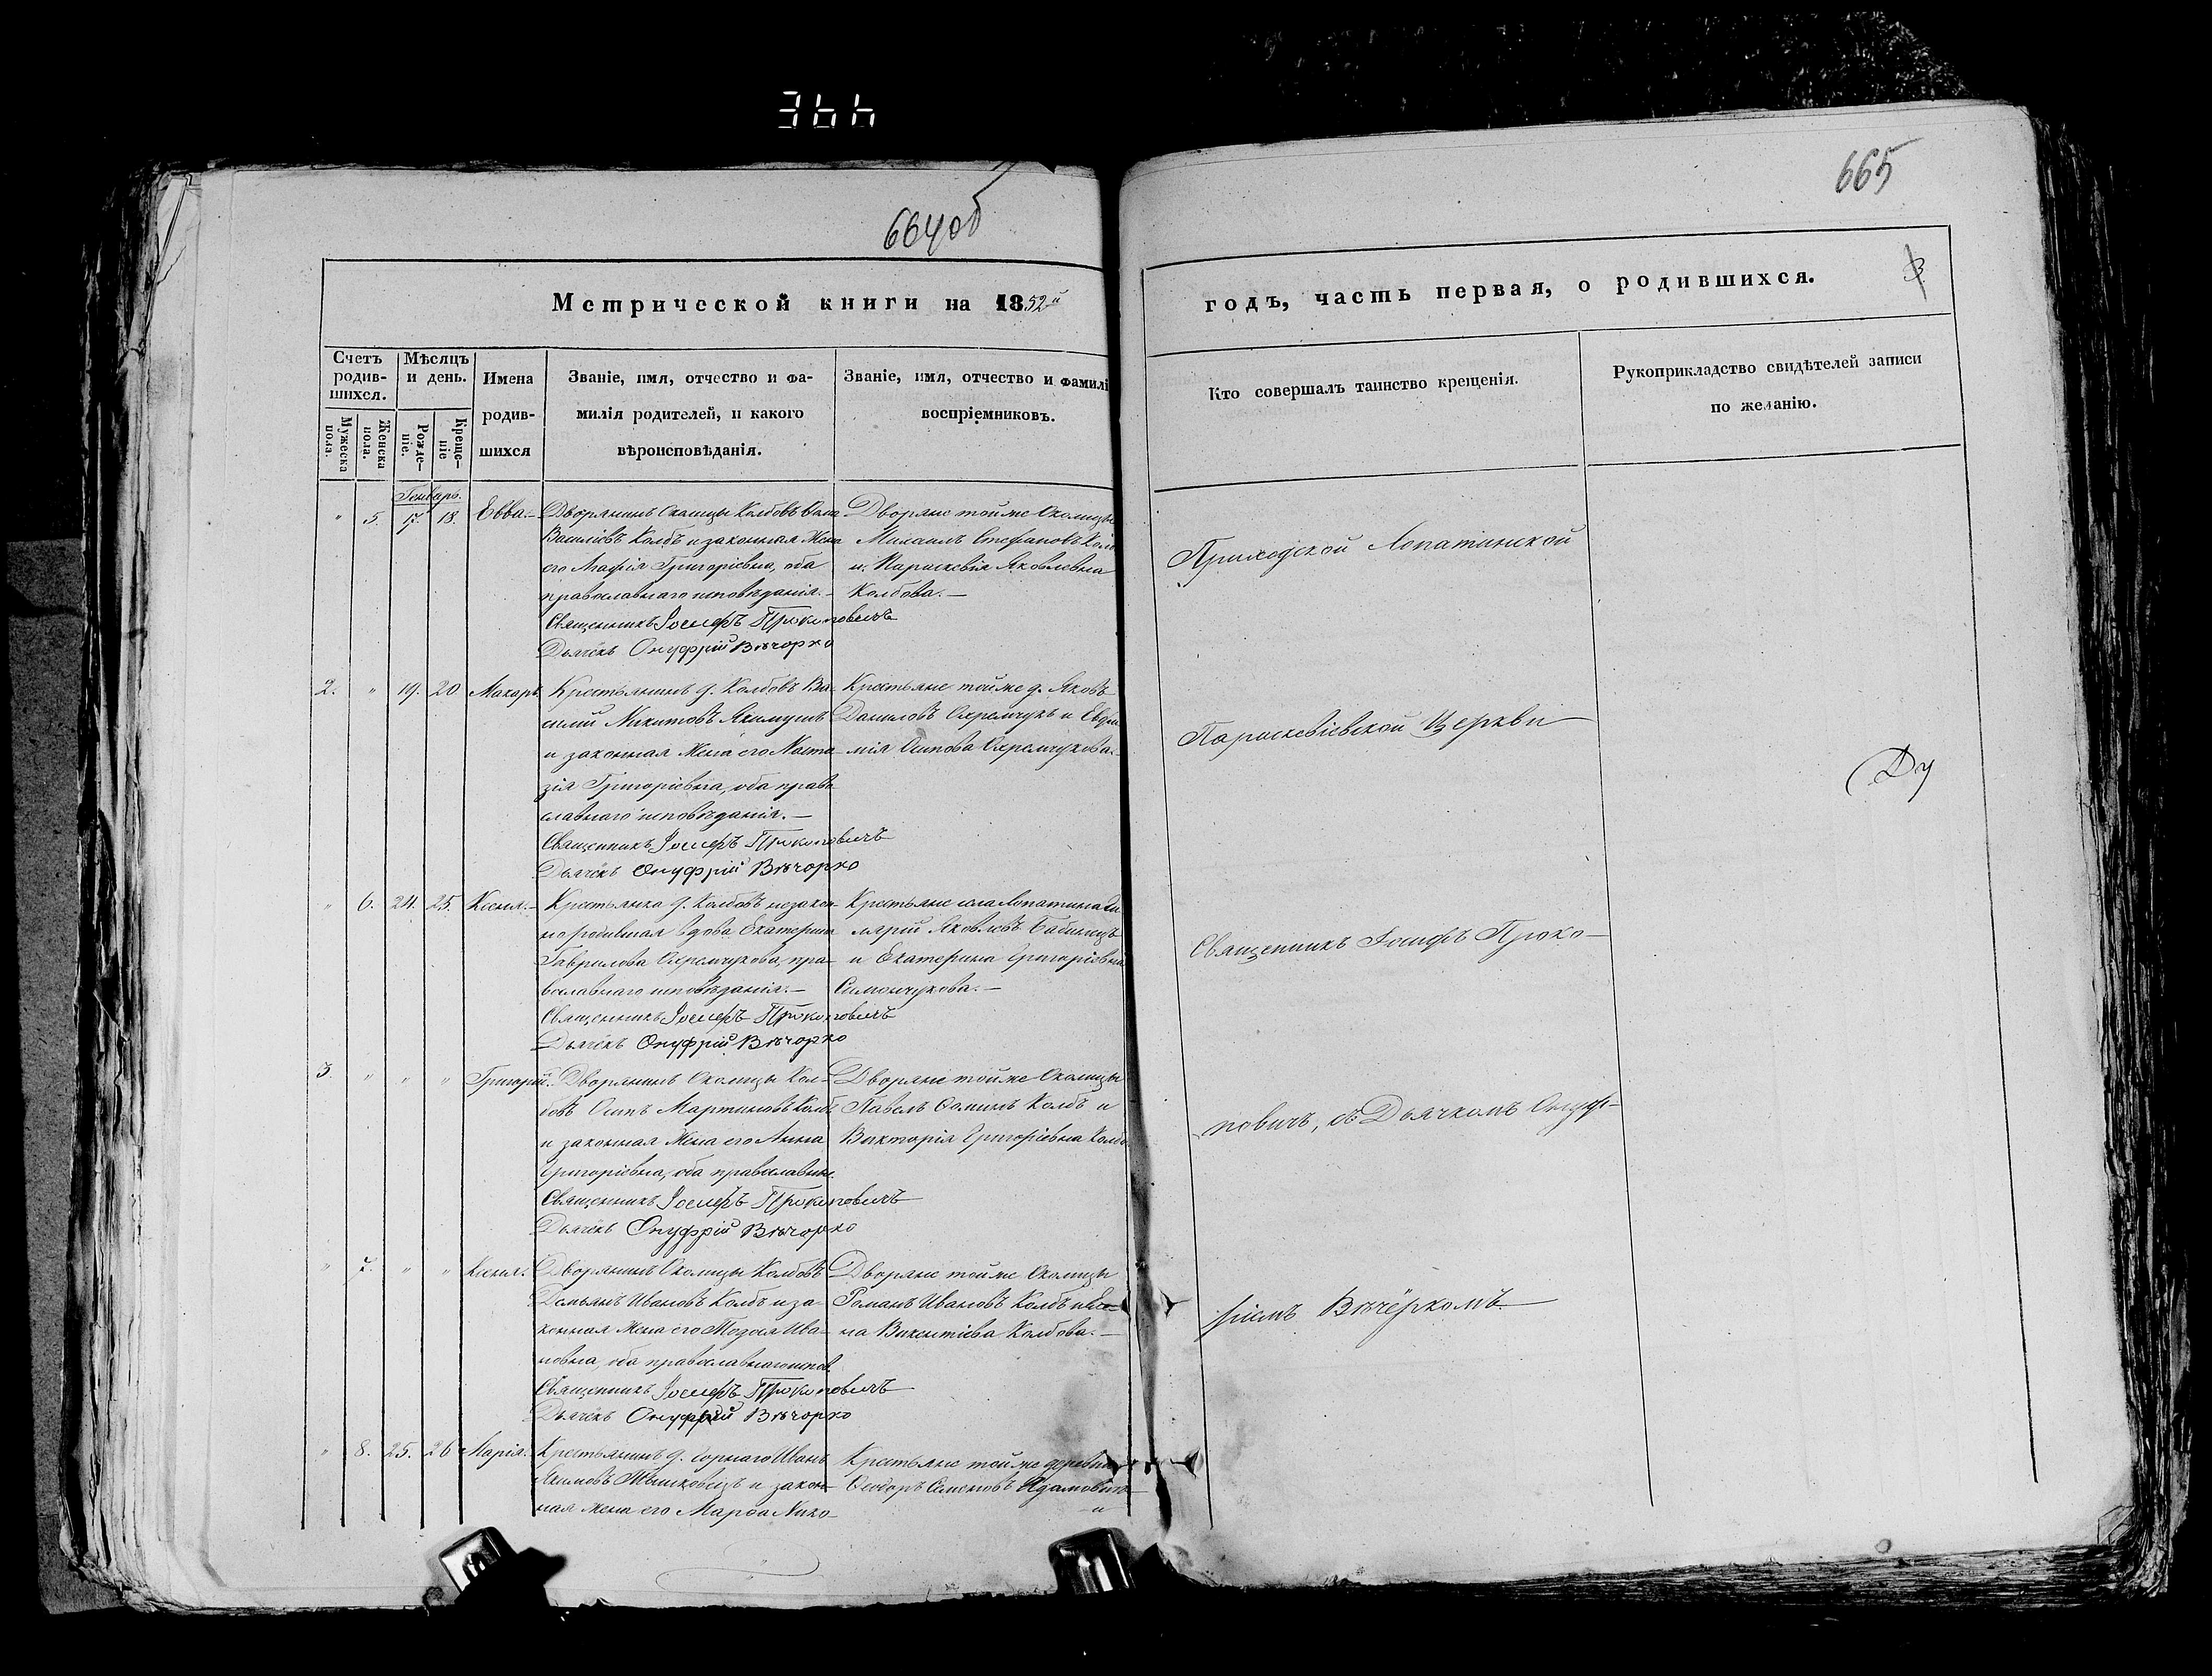 366
664об
665
Метрической книги на 1852й
годъ, часть первая, о родившихся.
3
Счетъ родившихся.
Мѣсяцъ и день.
Мужеска пола.
Женска пола.
Рожденіе.
Крещеніе
Имена родившихся
Званіе, имя, отчество и фамилія родителей, и какого вѣроисповѣданія.
Званіе, имя, отчество и фамилі воспріемниковъ.
Кто совершалъ таинство крещенія.
Рукоприкладство свидѣтелей записи по желанію.
Генварь.
" 5. 17. 18. Евва.
Дворянинъ Околицы Колбовъ
Василіевъ Колбъ и законная Жена
его Агафія Григоріевна, оба
православнаго исповѣданія.
Священникъ Іосифъ Прокоповичъ
Дьячекъ Онуфрій Вѣчорко
Дворяне тойже Околицы
Михаилъ Стефановъ Колб
и Параскевія Яковлевна
Колбова.
2. " 19. 20 Макаръ.
Крестьянинъ д. Колбовъ Ва-
силій Никитовъ Якимушъ
и законная Жена его Наста-
зія Григоріевна, оба право
славнаго исповѣданія.
Священникъ Іосифъ Прокоповичъ
Дьячекъ Онуфрій Вѣчорко
Крестьяне тойже д. Яковъ
Даниловъ Охремчукъ и Евфи
мія Осипова Охремчукова.
" 6. 24. 25. Ксенія.
Крестьянка д. Колбовъ незакон-
но родившая вдова Екатерина
Гаврилова Охремчукова, пра-
вославнаго исповѣданія.
Священникъ Іосифъ Прокоповичъ
Дьячекъ Онуфрій Вѣчорко
Крестьяне села Лопатина
Яковлевъ Бабинецъ
и Екатерина Григоріевна
Симончукова.
3. " " " Григорій.
Дворянинъ Околицы Кол-
бовъ Осипъ Мартиновъ Колбъ
и законная Жена его Анна
Григоріевна, оба православные
Священникъ Іосифъ Прокоповичъ
Дьячекъ Онуфрій Вѣчорко
Дворяне тойже Околицы
Павелъ Фоминъ Колбъ и
Викторія Григоріевна Колбо
" 7. " " Ксенія.
Дворянинъ Околицы Колбовъ
Демьянъ Ивановъ Колбъ и за-
конная Жена его Тодося Ива-
новна, оба православнаго испов.
Священникъ Іосифъ Прокоповичъ
Дьячекъ Онуфрій Вѣчорко
Дворяне тойже Околицы
Романъ Ивановъ Колбъ и
на Викентіева Колбова.
" 8. 25. 26 Марія.
Крестьянинъ д. Горнаго Иванъ
Якимовъ Тышковецъ и закон-
ная Жена его Марѳа Нико-
Крестьяне тойже деревни
Ѳеодоръ Семеновъ Адамовичъ
и
Приходской Лопатинской
Параскевіевской Церкви
Священникъ Іосифъ Проко-
повичъ, съ Дьячкомъ Онуф-
ріемъ Вѣчёркомъ.
Ду